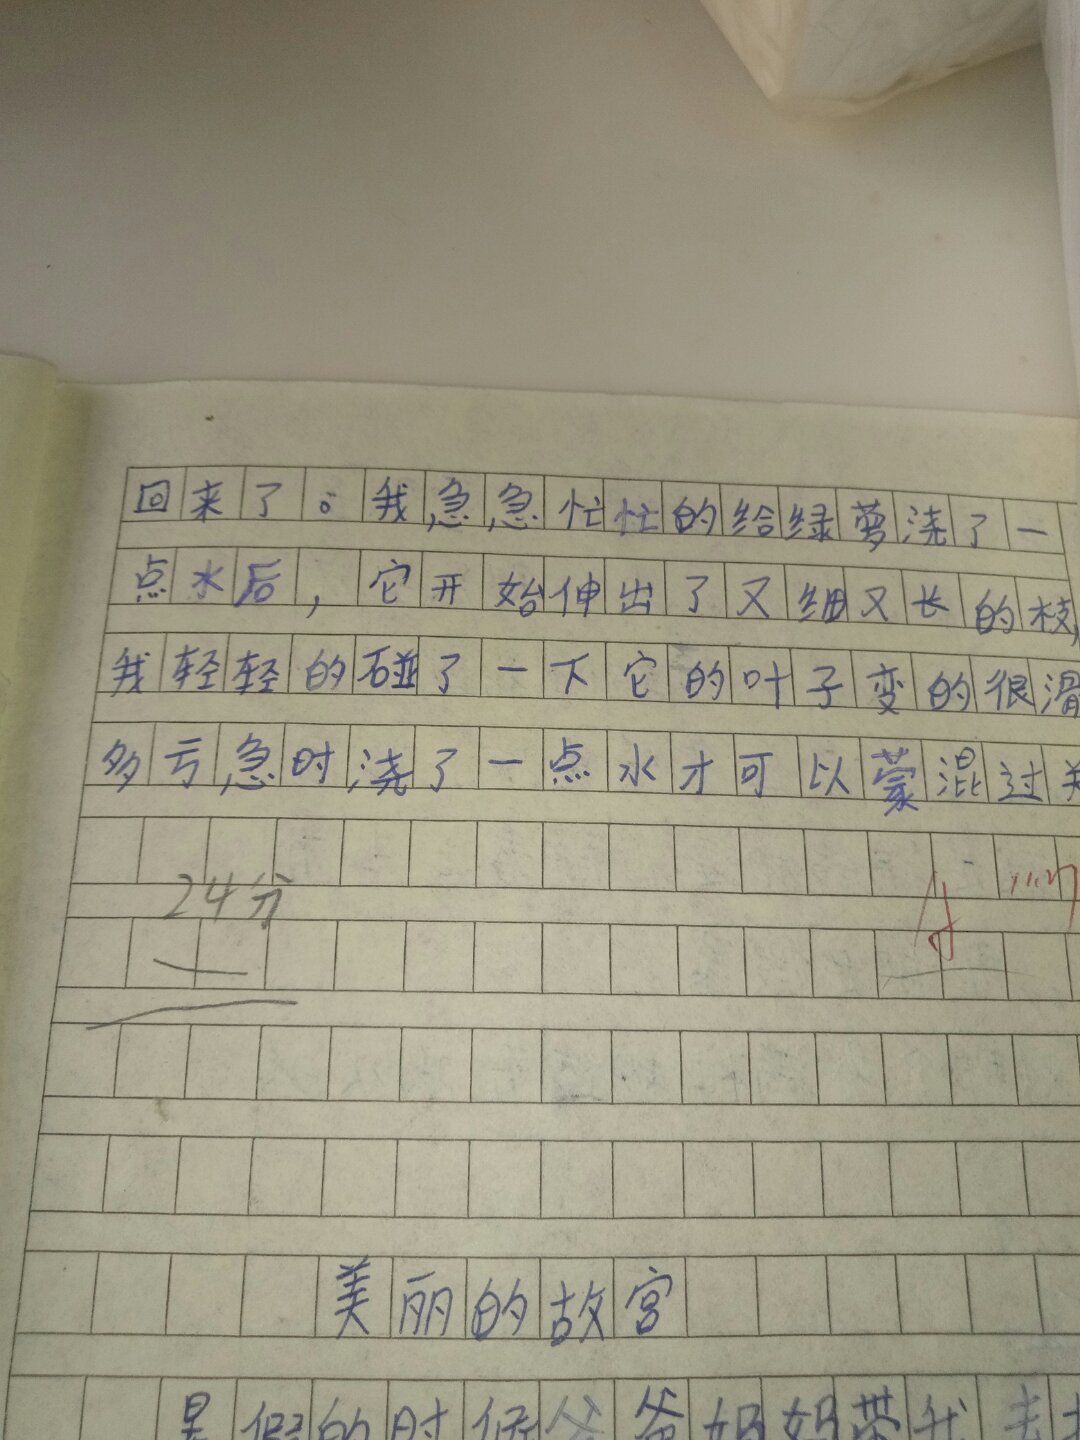 回来了。我急急忙忙的给绿萝浇了一
点水后，它开始伸出了又细又长的枝，
我轻轻的碰了一下它的叶子变的很滑
多亏急时浇了一点水才可以蒙混过关
24分
美丽的故宫
暑假的时候爸爸妈妈带我去